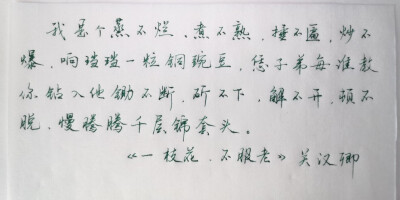 我是个蒸不烂、煮不熟、捶不匾、炒不
爆、响珰珰一粒铜豌豆，恁子弟每谁教
你钻入他锄不断、斫不下、解不开、顿不
脱、慢腾腾千层锦套头。
《一枝花·不服老》关汉卿